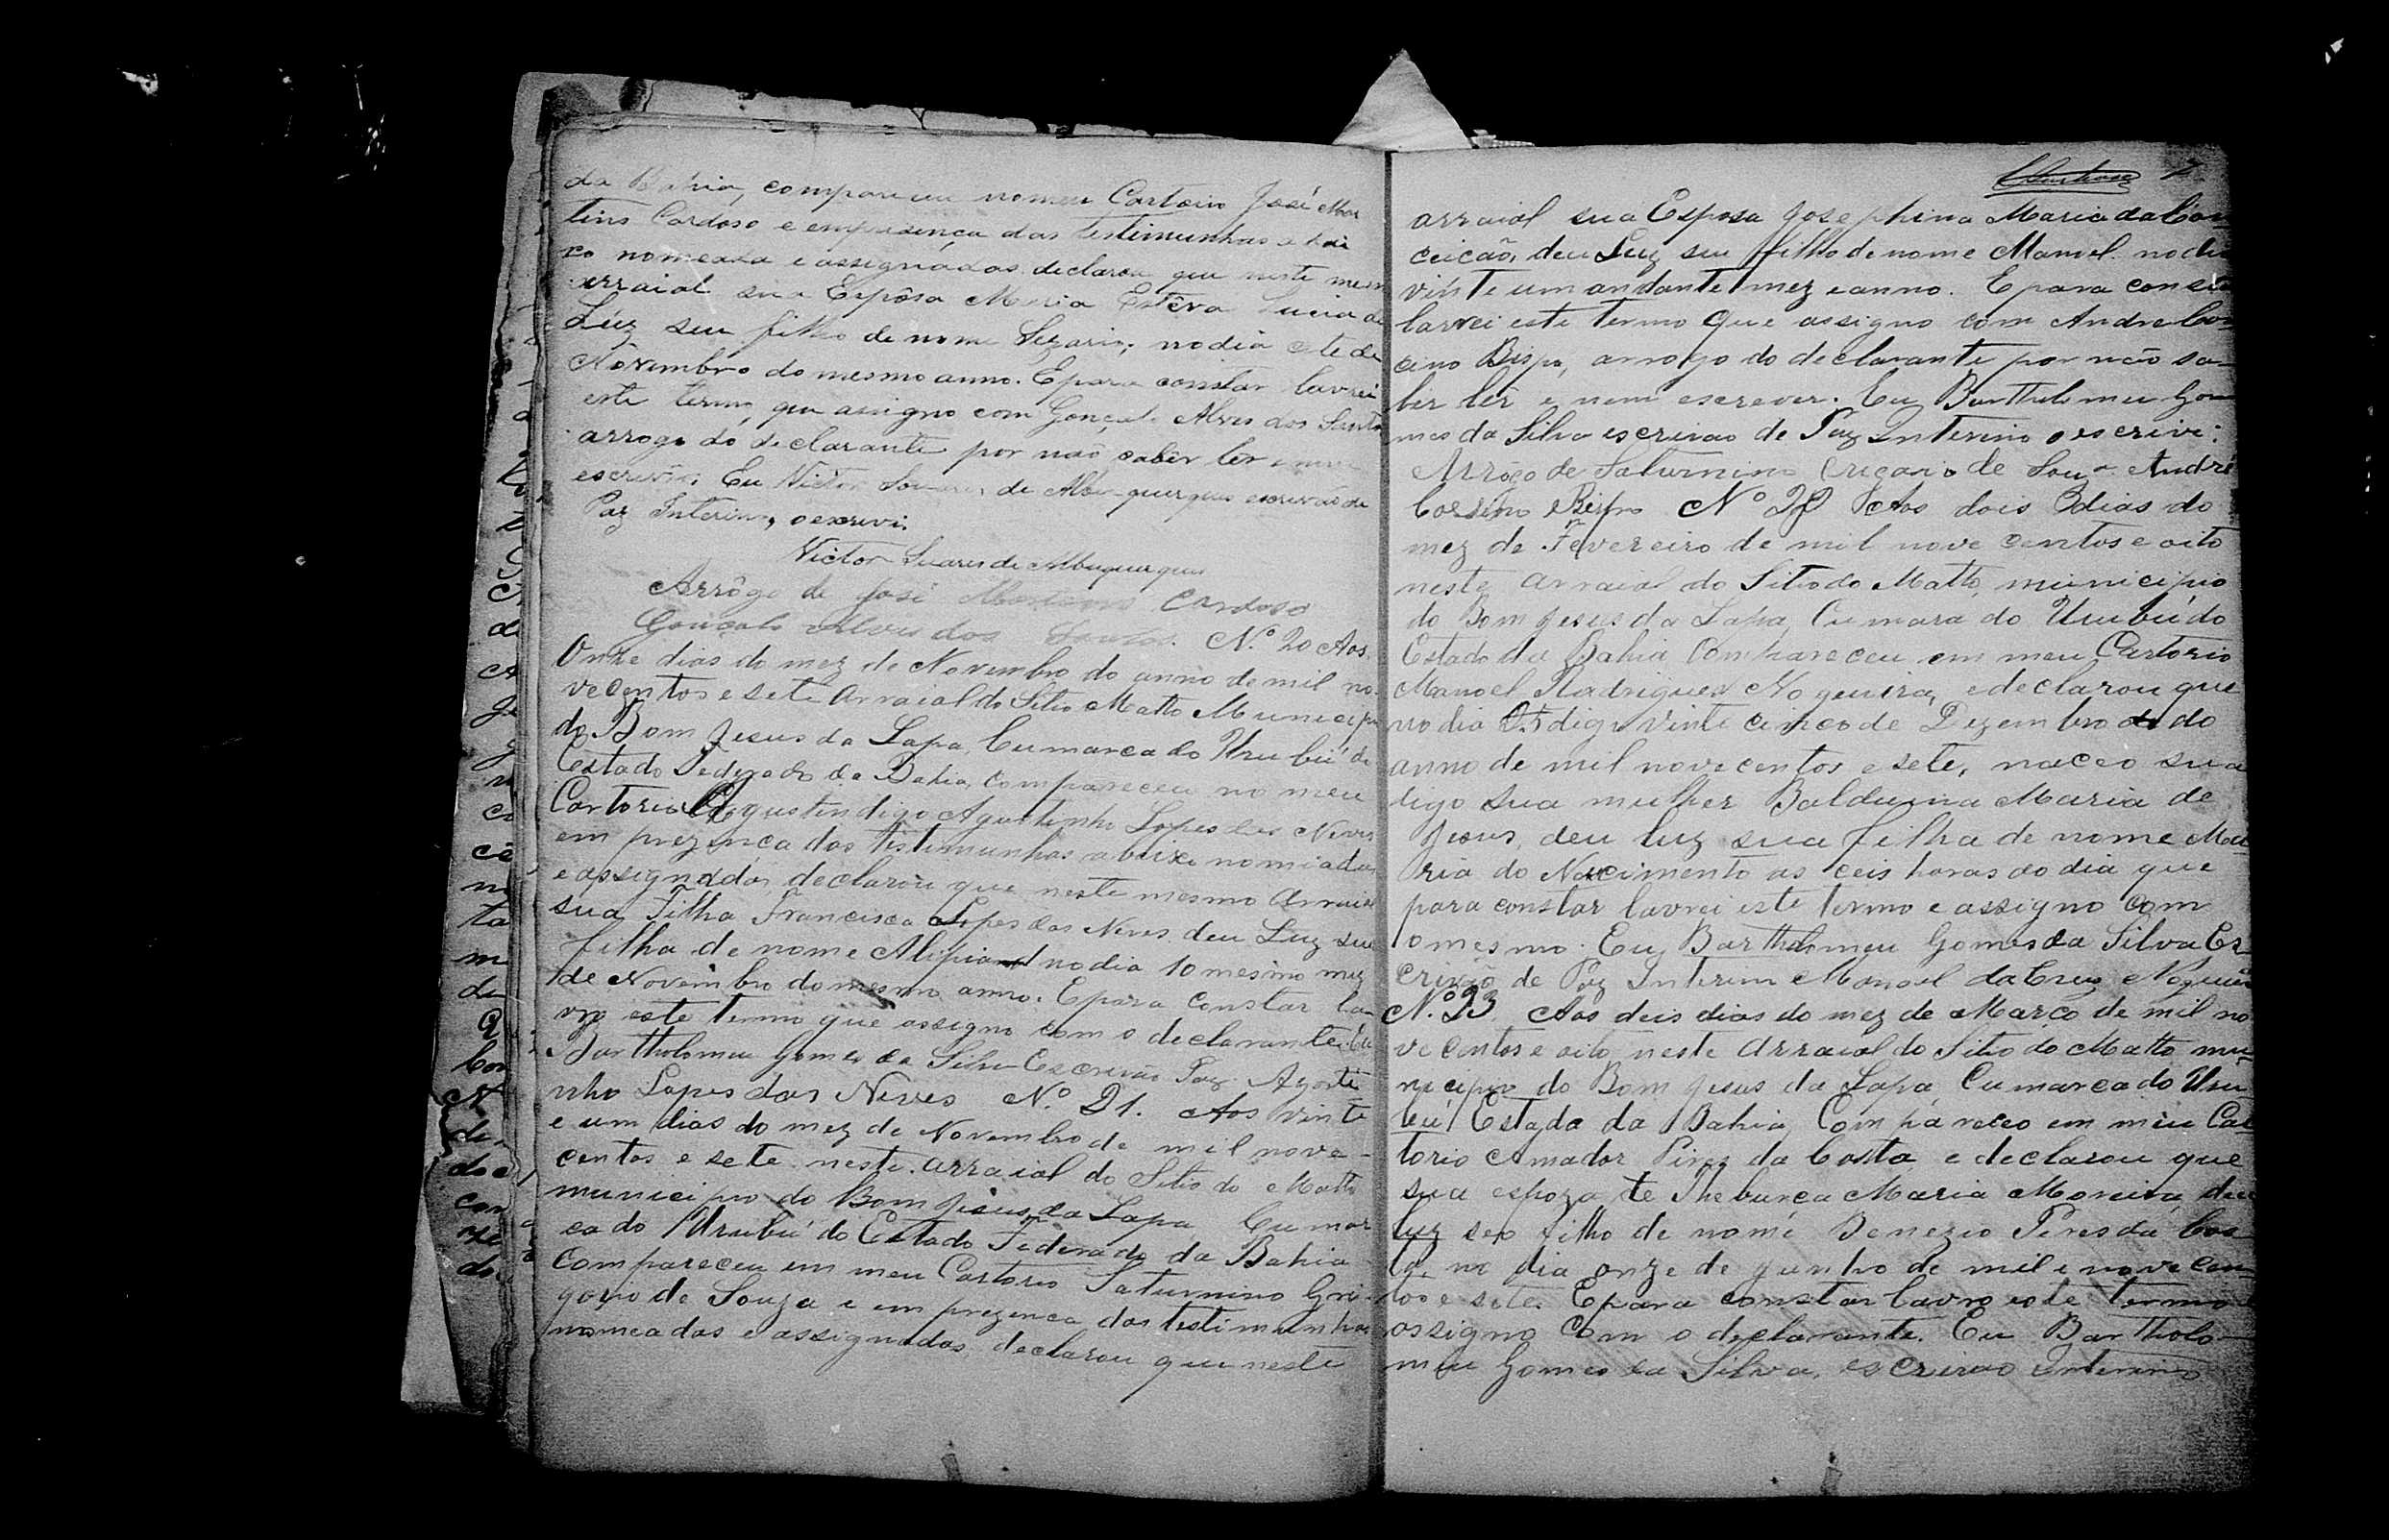 da Bahia, compareceu nomeu Cartorio José Mar
tins Cardoso e empresença das testimunhas abai
xo nomeada e assignádas declarou que neste mesm
arraial sua Espôsa Maria Estêva Lucia deu
Lúz seu filho de nome Sezario; nodia sete de
Novembro do mesmo anno. E para constar lavrei
este termo, que assigno com Gonçalo Alves dos Santos
arrogo do declarante por não sabêr lêr e nem
escrevêr. Eu Victor Soares de Albuquerque escrivão de
Paz Interino, o escrevi.
Victor Soares de Albuquerque
Arrôgo de José Martins Cardoso
Gonçalo Alves dos Santos. Nº 20 Aos
Onze dias do mez de Novembro do anno de mil no
vecentos e sete arraial do Sitio Matto Municipio
do Bom Jesus da Lapa, Cumarca do Urubú do
Estado Federado da Bahia, compareceu no meu
Cartorio Agustin digo Agustinho Lopes das Neves
em prezença das testimunhas abaixo nomiadas
e assignadas, declarou que neste mesmo Arraial
sua Filha Francisca Lopes das Neves deu Luz sua
filha de nome Alipia no dia 10 mesmo mez
de Novembro do mesmo anno. E para constar la
vro este termo que assigno com o declarante. Eu
Bartholomeu Gomes da Silva Escrivão Paz Agosti
nho Lopes das Neves Nº 21. Aos vinte
e um dias do mez de Novembro de mil nove-
centos e sete neste arraial do Sitio do Matto
municipio do Bom Jesus da Lapa Cumar
ca do Urubú do Estado Federado da Bahia
compareceu em meu Cartorio Saturnino Gri
gorio de Souza e em prezença das testimunhas
nomeadas e assignadas, declarou que neste
7
arraial sua Esposa Josephina Maria da Con
ceicão, deu Luz seu filho de nome Manoel no dia
vinte um andante mez e anno. E para consta
larvei este termo que assigno com Andre Cor
cino Bispo, arrogo do declarante por não sa-
ber lêr e nem escrever. Eu Bartholomeu Go
mes da Silva escrivao de Paz Interino o escrivi.
Arrôgo de Saturnino Grigorio de Souz André
Corsino Bispo Nº 22 Aos dois dias do
mez de Fevereiro de mil nove centos e oito
neste arraial do Sitio do Matto, municipio
do Bom Jesus da Lapa, Cumara do Urubú do
Estado da Bahia compareceu em meu Cartorio
Manoel Rodrigues Nogueira, e declarou que
no dia 25 digo vinte cinco de Dezembro do
anno de mil novecentos e sete, naceo sua
digo sua mulher Balduina Maria de
Jesus, deu luz sua filha de nome Ma
ria do Nacimento as ceis horas do dia que
para constar lavrei este termo e assigno com
o mesmo. Eu, Bartholomeu Gomes da Silva Es
crivão de Paz Interim Manoel da Cruz Nogueira
Nº 23 Aos deis dias do mez de Março de mil no
vecentos e oito, neste Arraial do Sitio do Matto mu
nicipio do Bom Jesus da Lapa, Cumarca do Uru
bú Estado da Bahia, Compareceo em meu Car
torio Amador Pires da Costa e declarou que
sua espoza Maria Moreira, deu
luz seo filho de nome Benezio Pires da Cos
ta, no dia onze de junho de mil e novecen
tos e sete. E para constar lavro este termo e
assigno com o declarante. Eu Bartholo
meu Gomes da Silva, escrivao Interino